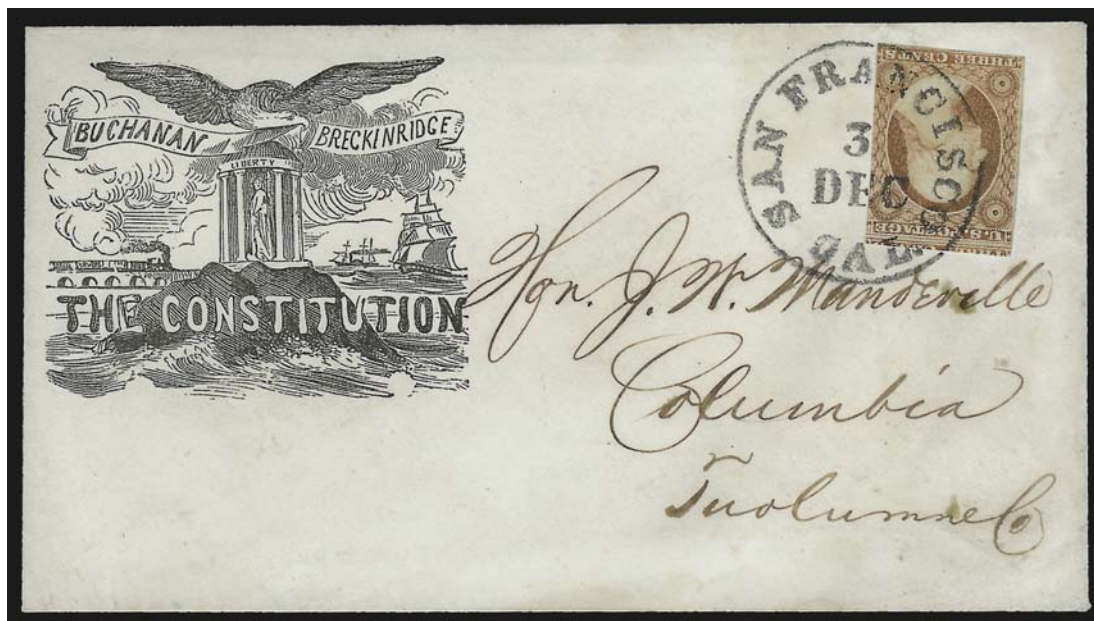 BUCHANAN BRECKINRIDGE
LIBERTY
THE CONSTITUTION
SAN FRANCISCO
3
DEC
CAL.
THREE CENTS
U.S. POSTAGE
Hon. J. W. Mandeville
Columbia
Tuolumne Co